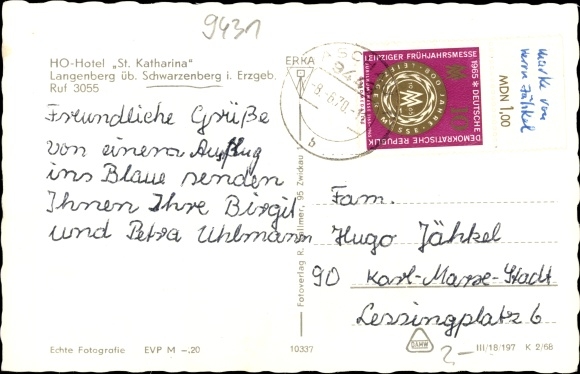 9431
HO-Hotel „St. Katharina"
Langenberg üb. Schwarzenberg i. Erzgeb.
Ruf 3055
Freundliche Grüße
von einem Ausflug
ins Blaue senden
Ihnen Ihre Birgit
und Petra Uhlmann
Echte Fotografie EVP M –,20
ERKA
10337
LEIPZIGER FRÜHJAHRSMESSE
1965 ★ DEUTSCHE
DEMOKRATISCHE REPUBLIK
800 JAHRE
MESSE
10
MDN 1,00
Marke von
Herrn Jähkel
Fam.
Hugo Jähkel
90 Karl-Marx-Stadt
Lessingplatz 6
DAMW
2–
III/18/197 K 2/68